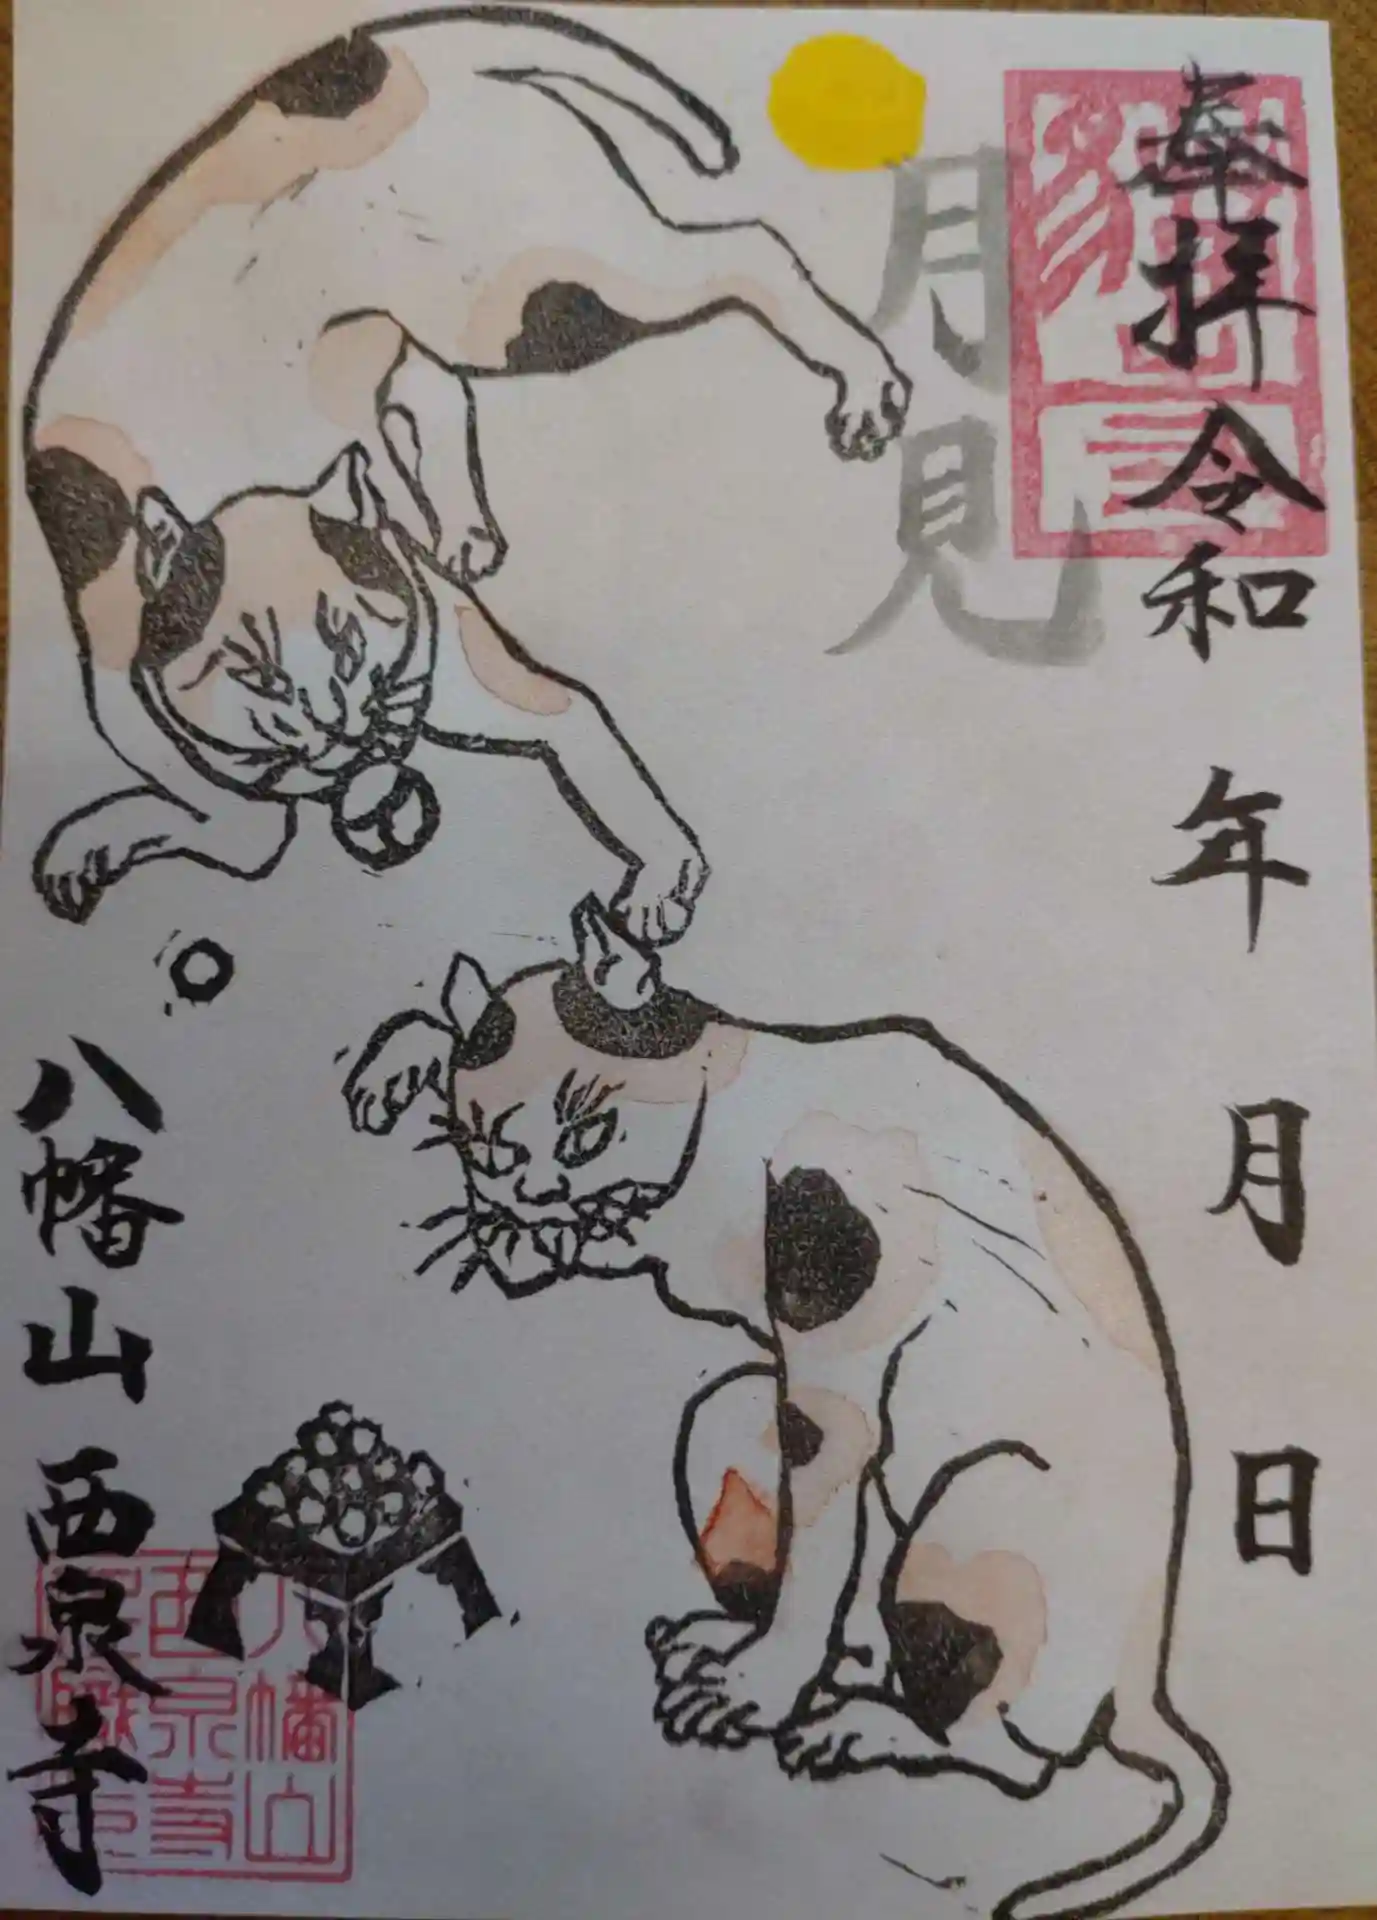 奉拝 令和 年 月 日
月見
八幡山 西泉寺
八幡山
西泉寺